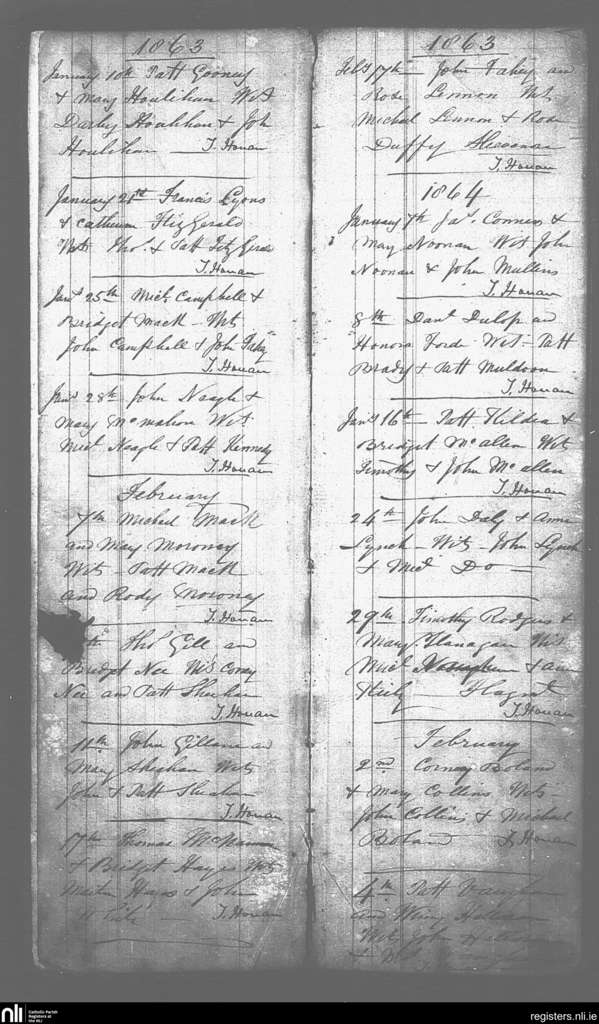 1863
January 10th Patt Gooney
& Mary Houlihan Wit
Darby Houlihan & Joh
Houlihan T. Honan
January 21st Francis Lyons
& Catherine FitzGerald
Wits Tho.s & Patt FitzGerald
T. Honan
Jany 25th Micl Campbell &
Bridget Mack Wits
John Campbell & John
T. Honan
Jany 28th John Neagle &
Mary McMahon Wit
Micl Neagle & Patt Kennedy
T. Honan
February
7th Michael Mack
and Mary Moroney
Wits Patt Mack
and Rody Moroney
T. Honan
th Thos Gill an
Bridget Nee Wits Corney
Nee an Patt Sheehan
T. Honan
11th John Gillane an
Mary Sheehan Wits
John & Patt Sheehan
T. Honan
17th Thomas
& Bridget Hayes Wits
Martin Hayes & John
T. Honan
1863
Feby 17th John Fahey an
Rose Lennon Wits
Michael Lennon & Rose
Duffy
T. Honan
1864
January 7th Jas. Connors &
Mary Noonan Wit John
Noonan & John Mullins
T. Honan
8th Danl Dulop an
Honora Ford Wit Patt
Brady & Patt Muldoon
T. Honan
Jany 16th Patt Kildea &
Bridget McAllen Wit
Timothy & John McAllen
T. Honan
24th John Daly & Anne
Lynch Wits John Lynch
& Micl Do
29th Timothy Rodgers &
Mary Flanagan Wits
Micl & Ann
T. Honan
February
2nd Corney Boland
& Mary Collins Wits
John Collins & Michael
Boland T. Honan
4th Patt Vaughan
and
Wits John
nli
Catholic Parish
Registers at
the NLI
registers.nli.ie